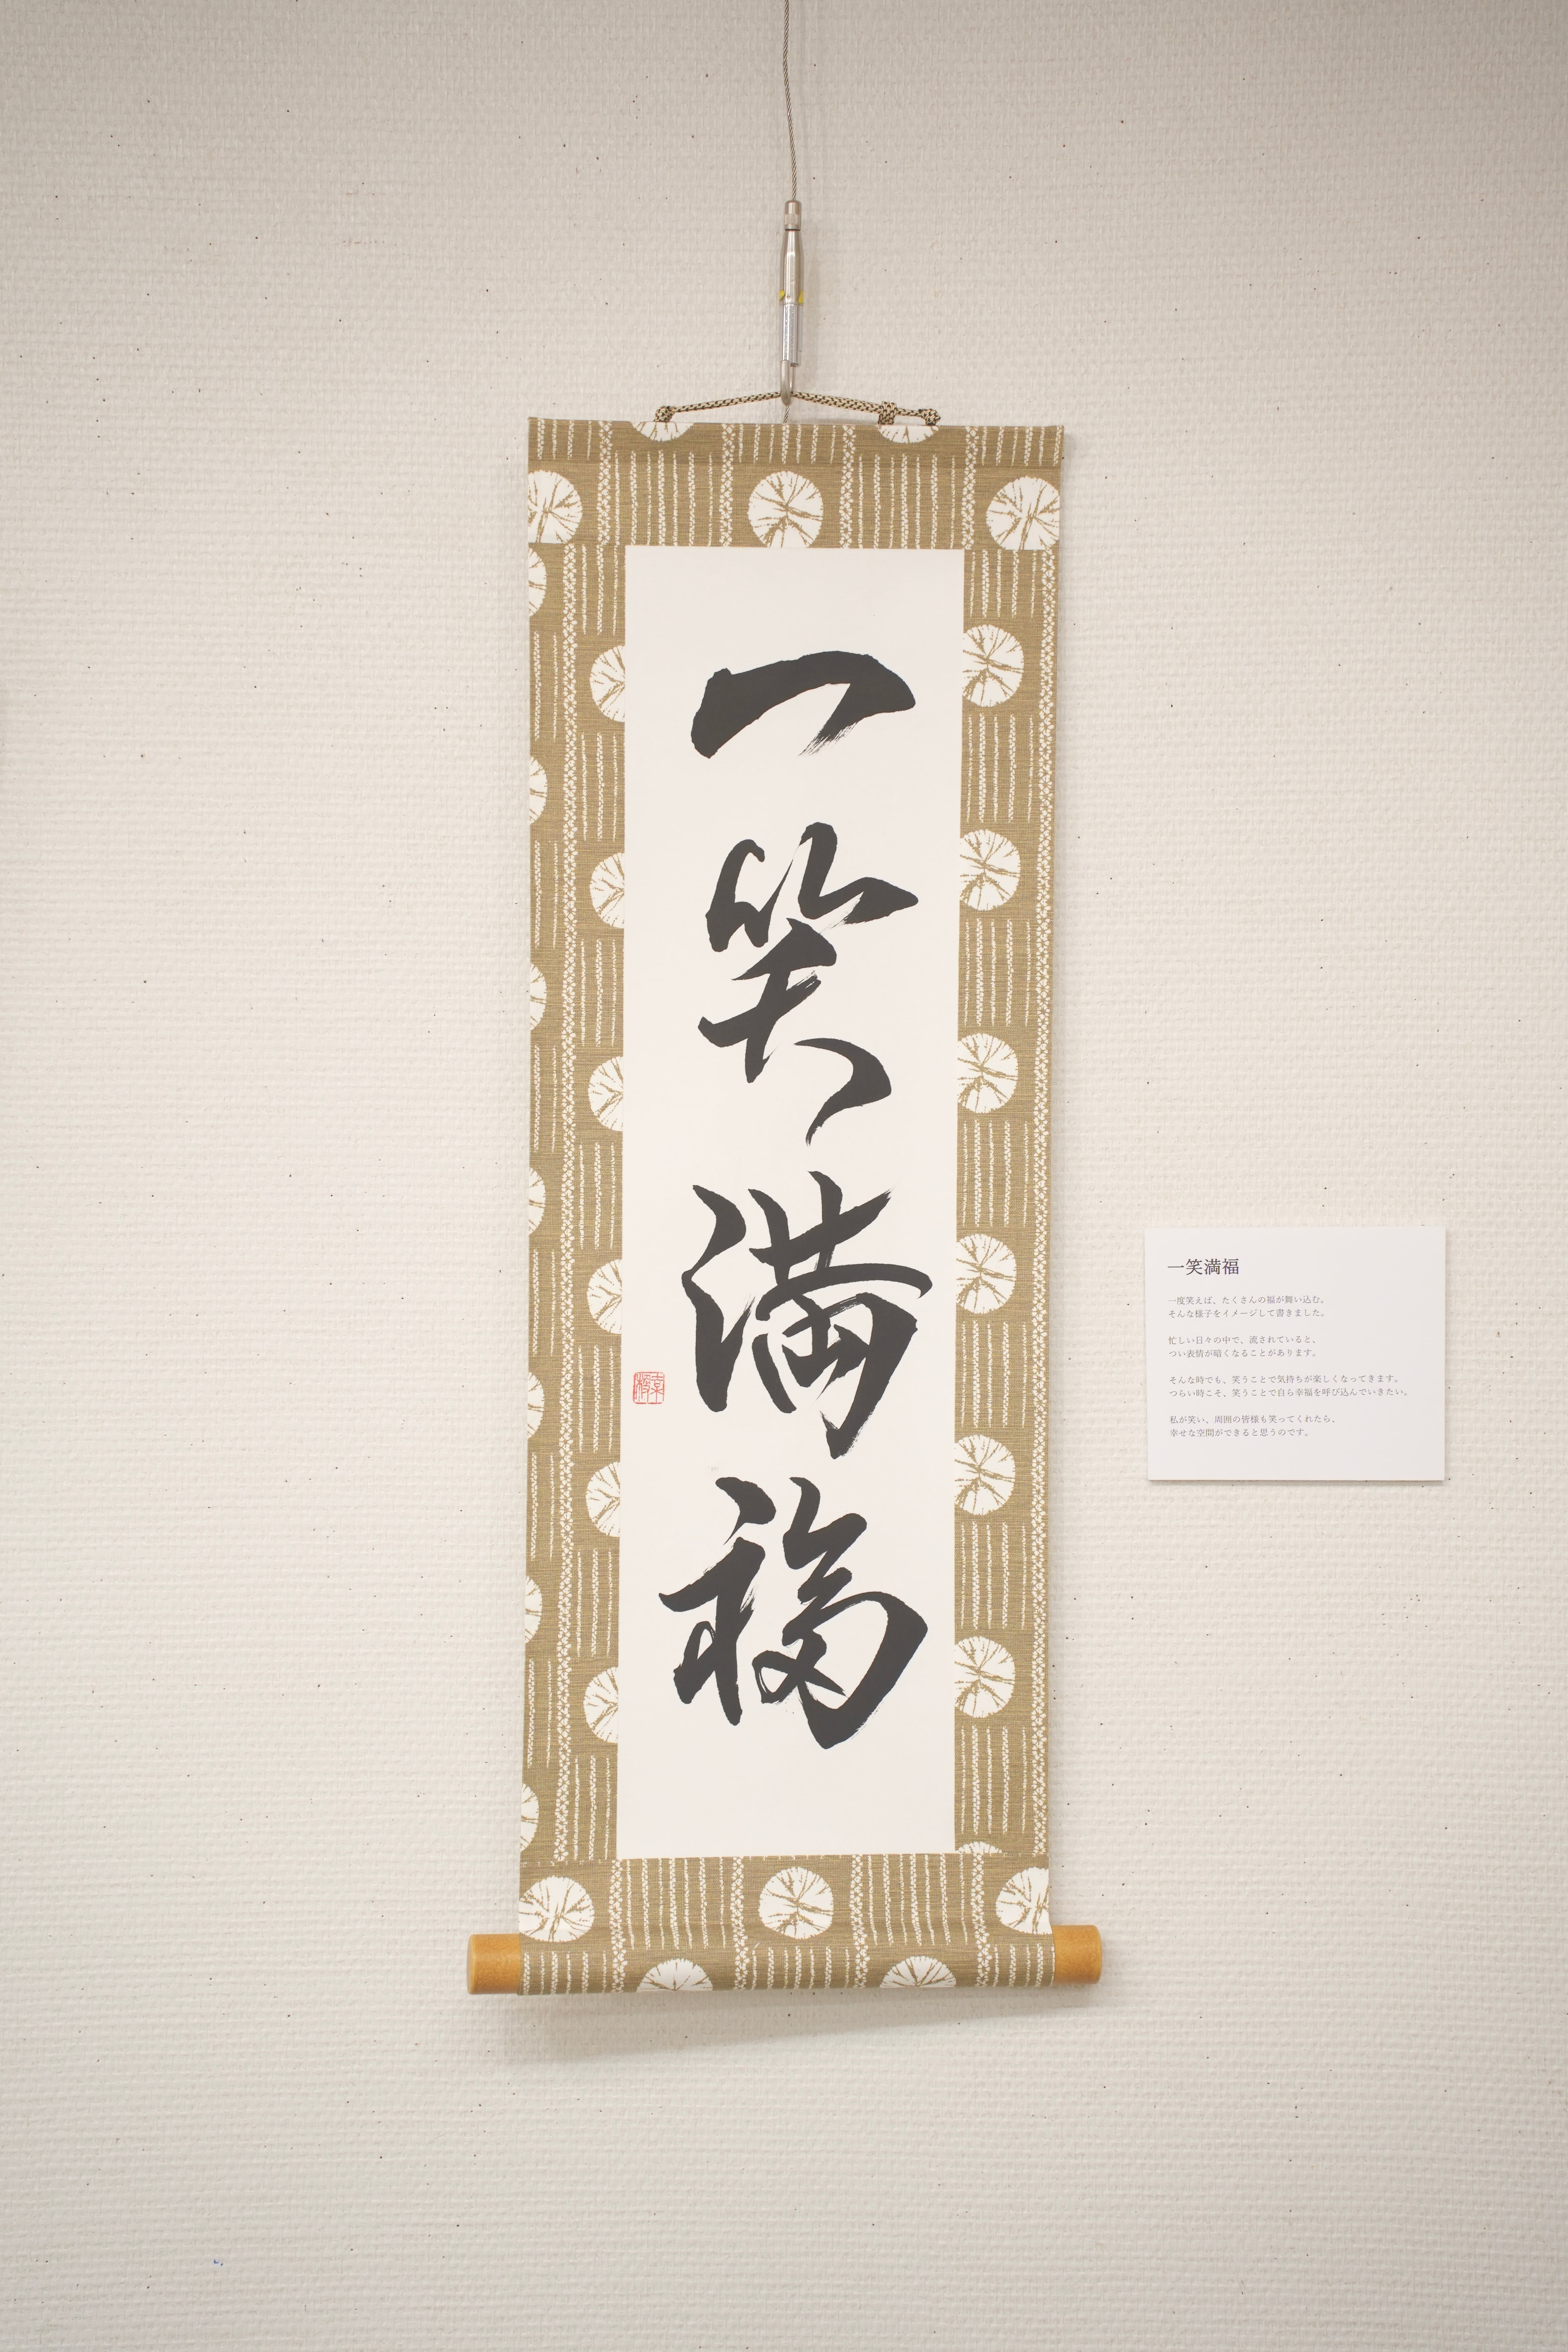 一笑満福
一笑満福
一度笑えば、たくさんの福が舞い込む。
そんな様子をイメージして書きました。
忙しい日々の中で、流されていると、
つい表情が暗くなることがあります。
そんな時でも、笑うことで気持ちが楽しくなってきます。
つらい時こそ、笑うことで自ら幸福を呼び込んでいきたい。
私が笑い、周囲の皆様も笑ってくれたら、
幸せな空間ができると思うのです。